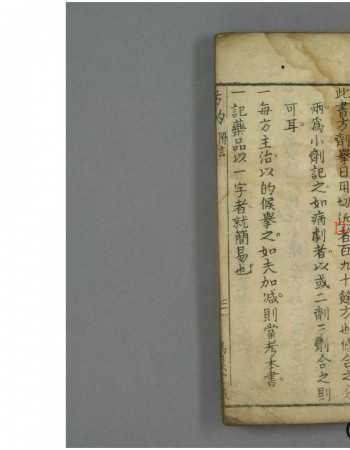 此書方劑擧日用切近者百九十餘方也但合之分
兩爲小劑記之如病劇者以或二劑三劑合之則
可耳
一每方主治以的候擧之如夫加减則當考本書
一記藥品以一字者就簡易也